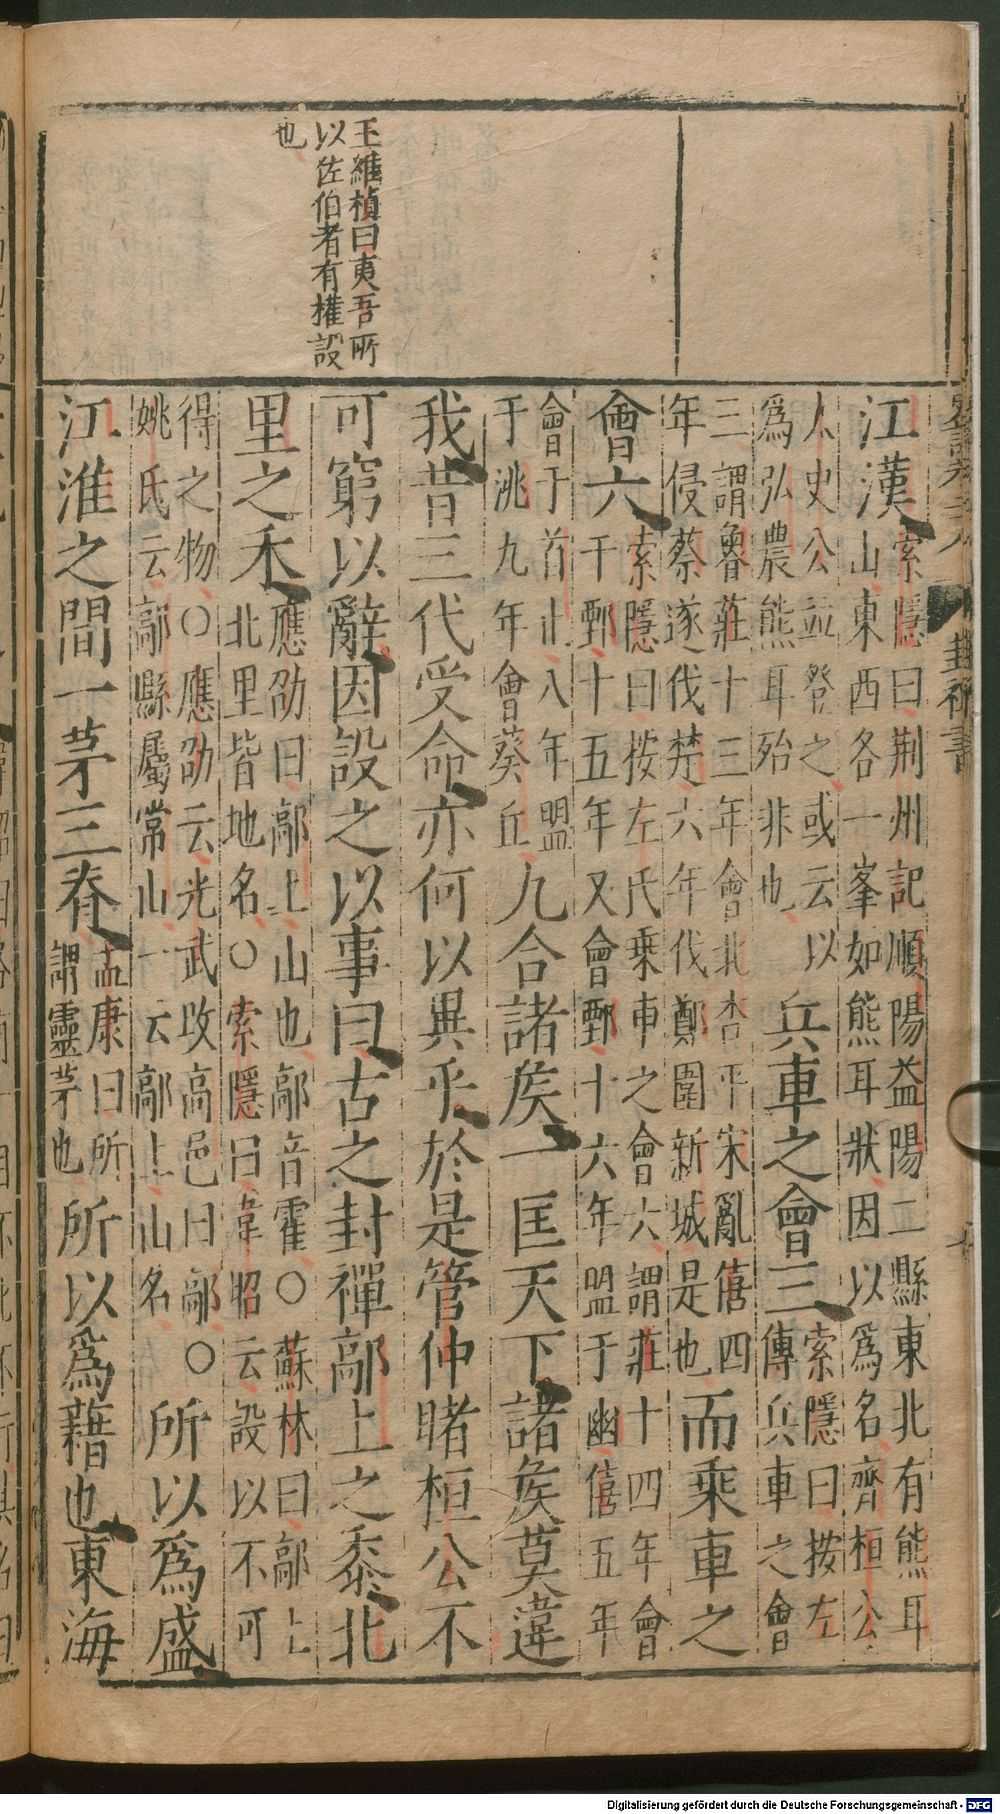 王維楨曰夷吾所
以佐伯者有權設
也
江漢
索隱曰荆州記順陽益陽二縣東北有熊耳
山東西各一峯如熊耳狀因以爲名齊桓公
太史公並登之或云以
爲弘農熊耳殆非也
兵車之會三
索隱曰按左
傳兵車之會
三謂魯莊十三年會北杏平宋亂僖四
年侵蔡遂伐楚六年伐鄭圍新城是也
而乘車之
會六
索隱曰按左氏乘車之會六謂莊十四年會
于鄄十五年又會鄄十六年盟于幽僖五年
會于首止八年盟
于洮九年會葵丘
九合諸矦一匡天下諸矦莫違
我昔三代受命亦何以異乎於是管仲睹桓公不
可窮以辭因設之以事曰古之封禪鄗上之黍北
里之禾
應劭曰鄗上山也鄗音霍○蘇林曰鄗上
北里皆地名○索隱曰韋昭云設以不可
得之物○應劭云光武攺高邑曰鄗○
姚氏云鄗縣屬常山一云鄗上山名
所以爲盛
江淮之間一茅三脊
孟康曰所
謂靈茅也
所以爲藉也東海
Digitalisierung gefördert durch die Deutsche Forschungsgemeinschaft - DFG